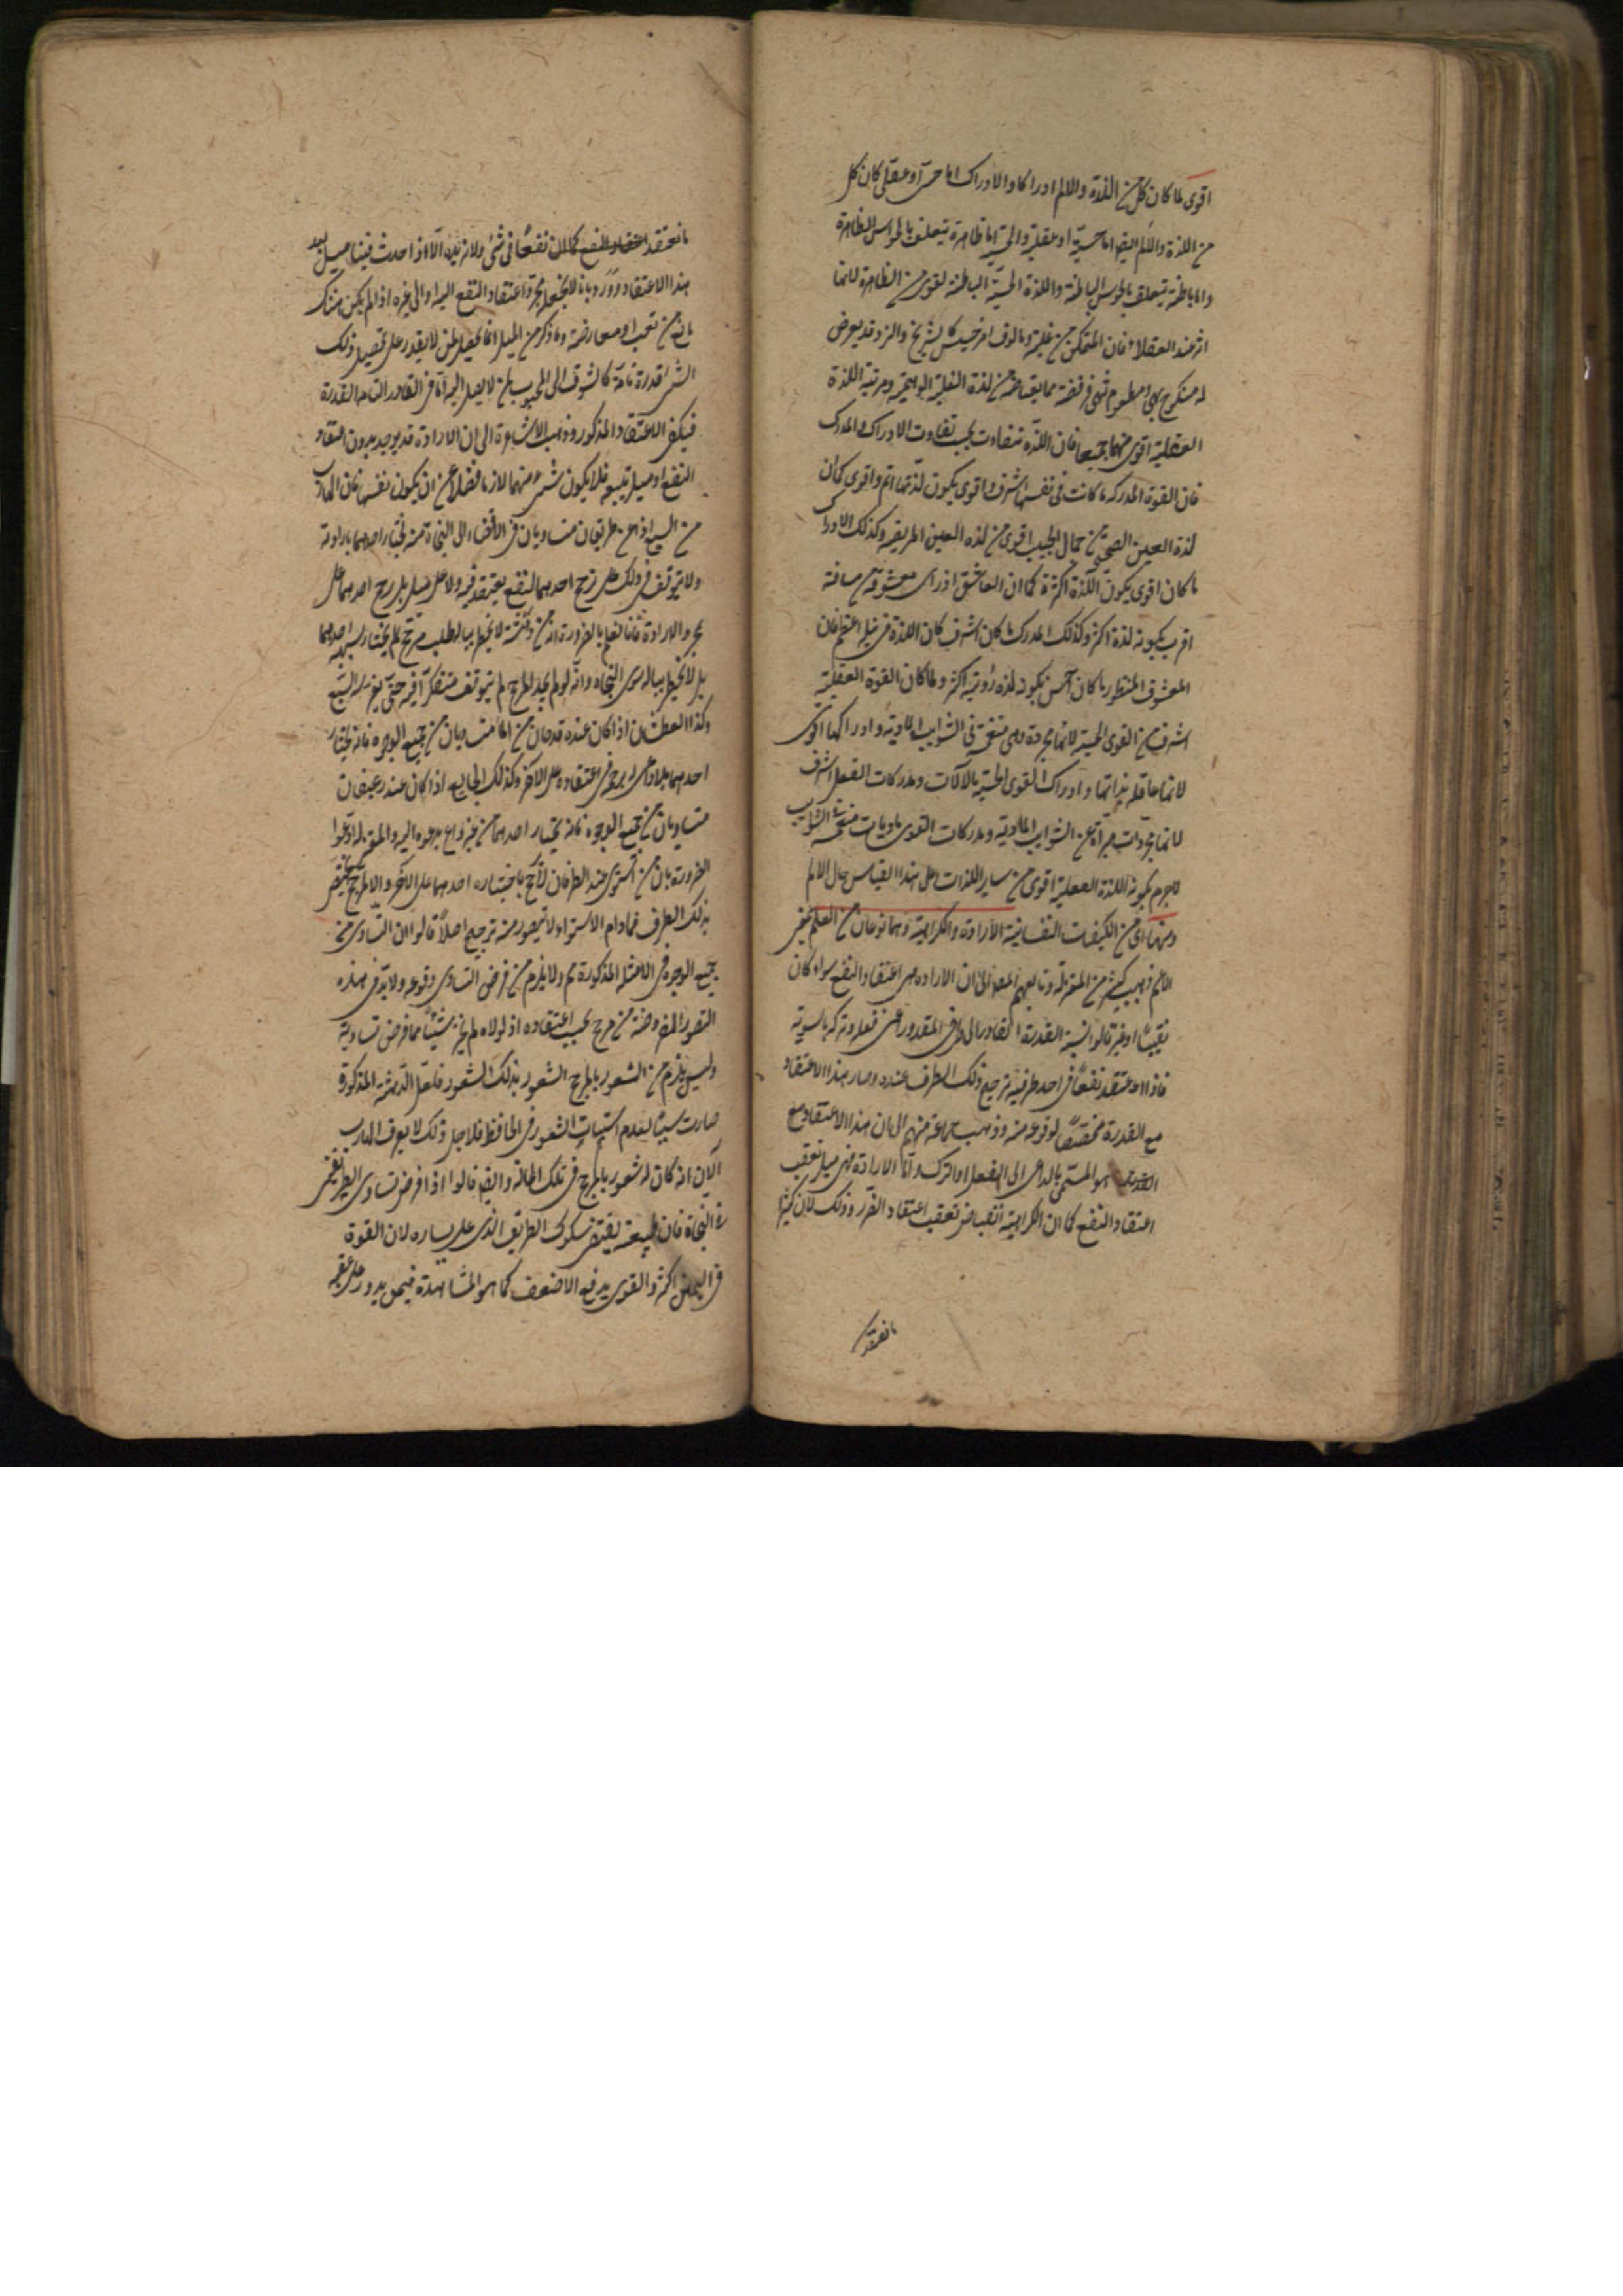 اقوى لما كان كل من اللذة والالم ادراكا والادراك اما حسى او عقلى كان كل
من اللذة والالم ايضا اما حسية او عقلية والحسية اما ظاهرة تتعلق بالحواس الظاهرة
واما باطنة تتعلق بالحواس الباطنة واللذة الحسية الباطنة اقوى من الظاهرة لانها
اثر عند العقلاء فان المتمكن من غلبة ما ولو فى امر خسيس كالشطرنج والنرد قد يعرض
له منكوح بهى ومطعوم شهى فيرفضه مما يعتاضه من لذة الغلبة الوهمية ومرتبة اللذة
العقلية اقوى منهما جميعا فان اللذة تتفاوت بحسب تفاوت الادراك والمدرك
فان القوة المدركة ما كانت فى نفسها اشرف واقوى يكون لذتها اتم واقوى كما ان
لذة العين الصحيح من جمال الحبيب اقوى من لذة العين المريضة وكذلك الادراك
ما كان اقوى يكون اللذة اكثر كما ان العاشق اذا راى معشوقه من مسافة
اقرب يكون لذة اكثر وكذلك المدرك ما كان اشرف كان اللذة فى نيله اعظم فان
المعشوق المنظور ما كان احسن يكون لذة رؤيته اكثر ولما كان القوة العقلية
اشرف من القوى الحسية لانها مجردة وهى منغمسة فى الشوايب المادية وادراكها اقوى
لانها عاقلة بذاتها وادراك القوى الحسية بالآلات ومدركات العقل اشرف
لانها مجردات مبرأة عن الشوايب المادية ومدركات القوى ماديات الشوايب
لاجرم يكون اللذة العقلية اقوى من ساير اللذات وعلى هذا القياس حال الالم
ومنها اى من الكيفيات النفسانية الارادة والكراهية وهما نوعان من العلم بمعنى
الاعم وذهب كثير من المعتزلة وتابعهم المص الى ان الارادة هى اعتقاد النفع سواء كان
يقينيا او غيره قالوا نسبة القدرة القادر الى طرفى المقدور اعنى فعله وتركه بالسوية
فاذا اعتقد نفعا فى احد طرفيه ترجح ذلك الطرف عنده وصار هذا الاعتقاد
مع القدرة مخصصا لوقوعه منه وذهب جماعة منهم الى ان هذا الاعتقاد مع
القدرة هو المسمى بالداعى الى الفعل او الترك واما الارادة فهى ميل يعقب
اعتقاد النفع كما ان الكراهية انقباض تعقب اعتقاد الضرر وذلك لان كثيرا
ما نعتقد
ما نعتقد نفعا فى شئ ولا نريده الا اذا حدث فينا ميل بعد
هذا الاعتقاد ورد بانا لا نجعل مجرد اعتقاد النفع اليه او الى غيره اذا لم يكن هناك
مانع من تعب او معارضة وما ذكر من الميل انما يحصل لمن لا يقدر على تحصيل ذلك
الشئ قدرة تامة كالشوق الى المحبوب لمن لا يصل اليه اما فى القادر التام القدرة
فيكفى الاعتقاد المذكور وذهب الاشاعرة الى ان الارادة قد يوجد بدون اعتقاد
النفع او ميل يتبعه فلا يكون شئ منهما لازما فضلا عن ان يكون نفسها فان الهارب
من السبع اذا عن طريقان متساويان فى الافضاء الى النجاة منه يختار احدهما بارادته
ولا يتوقف فى ذلك على ترجح احدهما لنفع يعتقده فيه ولا على ميل بل يرجح احدهما على
مجرد الارادة فانا نعلم بالضرورة انه من دهشته لا يخطر بباله طلب مرجح لم يختار سببه احدهما
بل لا يخطر بباله سوى النجاة وانه لو لم يجد المرجح لم يتوقف متفكرا فيه حتى يفترسه السبع
وكذا العطشان اذا كان عنده قدحان من الماء متساويان من جميع الوجوه فانه يختار
احدهما بلا داعى له يرجحه فى اعتقاده على الآخر وكذلك الجايع اذا كان عنده رغيفان
متساويان من جميع الوجوه فانه يختار احدهما من غير داع يدعوه اليه والمعتزلة ادعوا
الضرورة بان من استوى عنده الطرفان لا يرجح باختياره احدهما على الآخر الا لمرجح يختص
بذلك الطرف فما دام الاستواء لا يتصور منه ترجيح اصلا قالوا ان التساوى من
جميع الوجوه فى الامثلة المذكورة مم ولا يلزم من فرض التساوى وقوعه ولا بد فى هذه
الصور المفروضة من مرجح بحسب اعتقاده اذ لولاه لم يختر شيئا مما فرض تساويه
وليس يلزم من الشعور بالمرجح الشعور بذلك الشعور فلعل الدهشة المذكورة
صارت سببا لعدم استثبات الشعور فى الحافظة فلاجل ذلك لا يعرف الهارب
الآن انه كان له شعور بالمرجح فى تلك الحالة وايضا قالوا اذا فرض تساوى الطريقين
فى النجاة فان طبيعته يقتضى سلوك الطريق الذى على يساره لان القوة
فى اليمين اكثر والقوى يدفع الاضعف كما هو المشاهدة فيمن يدور على عقبه